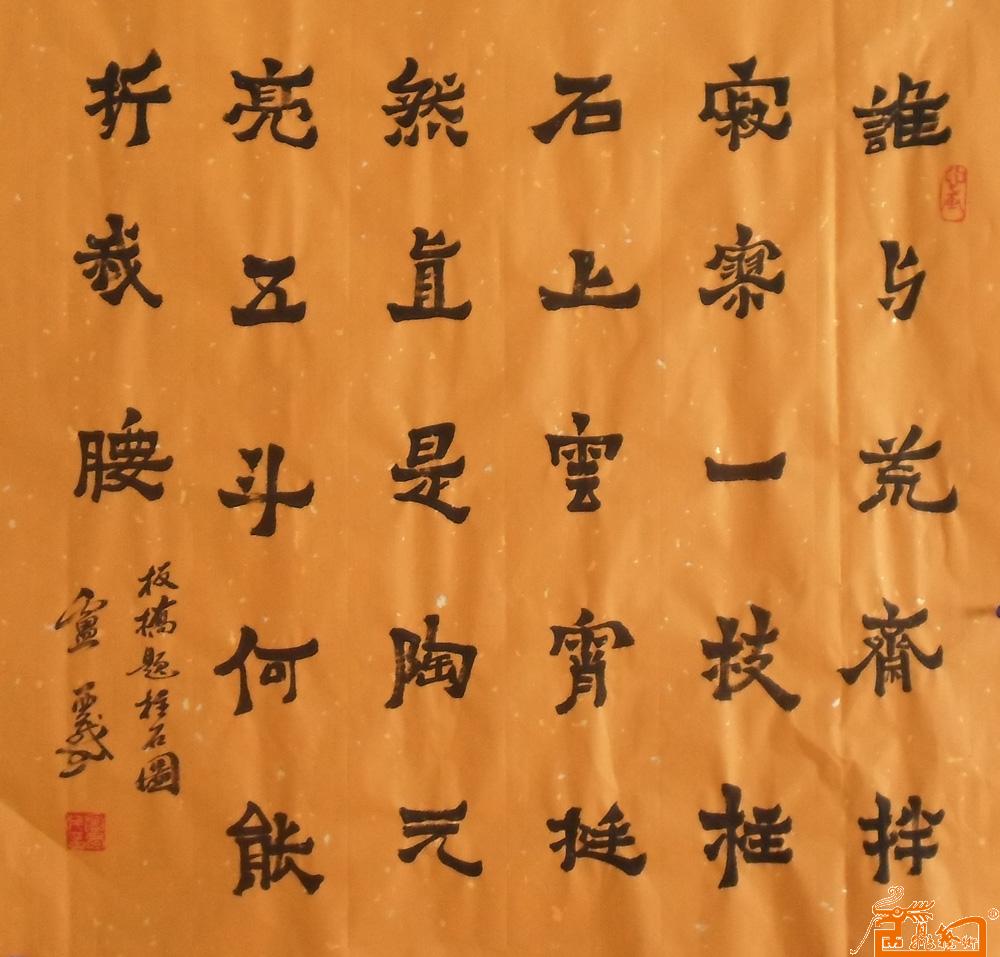 誰与荒齋拌
寂寥一技柱
石上雲霄挺
然直是陶元
亮五斗何能
折我腰
板橋题柱石圖